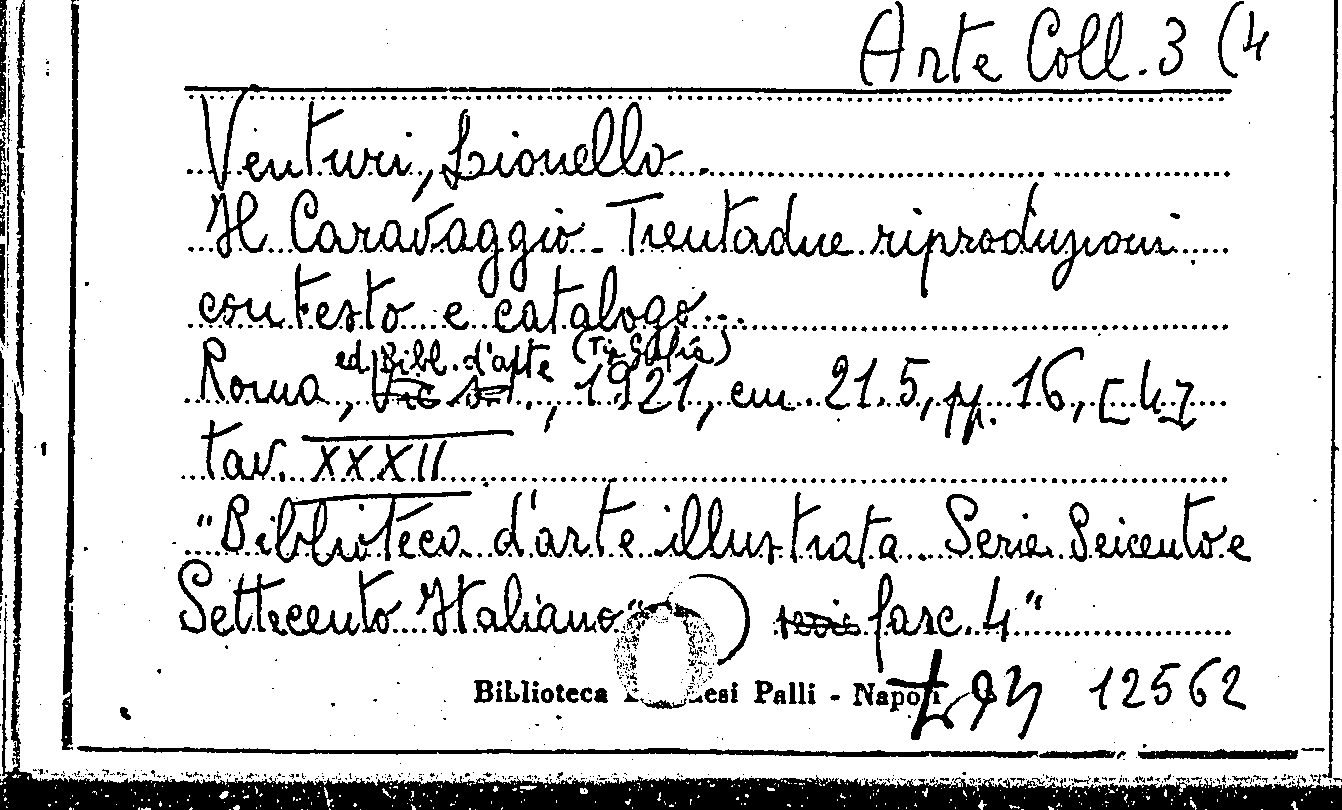 Arte Coll. 3 (4
Venturi, Lionello
Il Caravaggio - Trentadue riproduzioni
con testo e catalogo...
ed. Bibl. d'arte (Tip.
Roma, , 1921, cm. 21.5, pp. 16, [4]
tav. XXXII
"Biblioteca d'arte illustrata. Serie Seicento e
Settecento Italiano" fasc. 4"
Biblioteca Palli - Napoli 12562